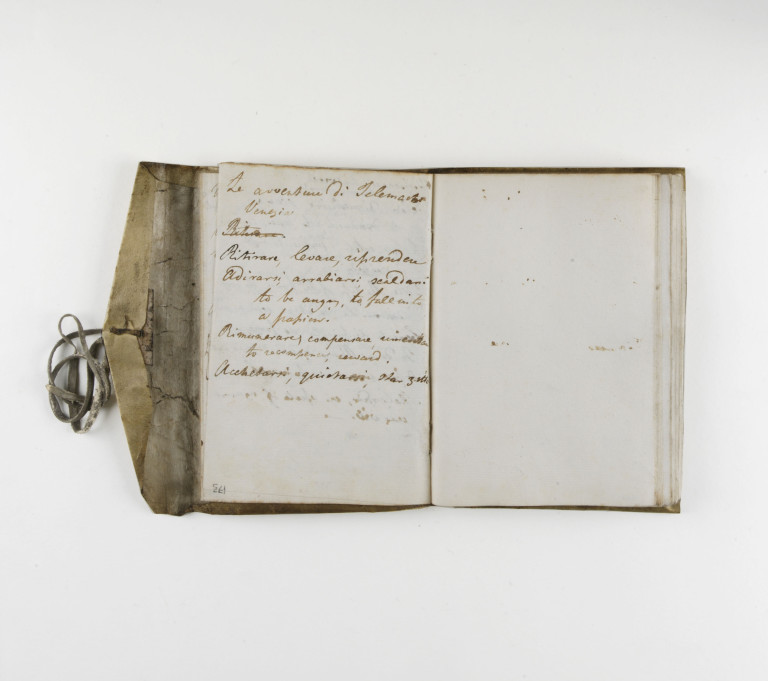 Le avventure di Telemaco
Venezia
Ritirare, levare, riprendere
Adirarsi, arrabiarsi scaldarsi
to be angry, to fall into
a passion.
Rimunerare, compensare
to recompence, reward.
Acchetarsi, quietarsi, star zitto